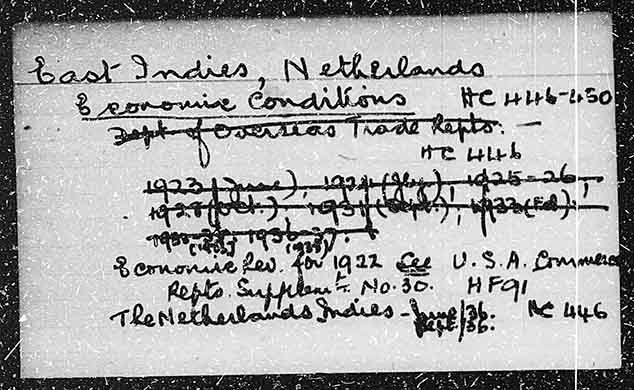 East Indies, Netherlands
Economic Conditions HC 446-450
Dept of Overseas Trade Repts. —
HC 446
1923 (June), 1924 (July), 1925-26,
1927 (Oct.), 1931 (Sept.), 1933 (Feb)
1936-37.
Economic Rev. for 1922 See U.S.A. Commerce
Repts. Supplemt. No. 30. HF91
The Netherlands Indies - June/36. HC 446
Sept./36.